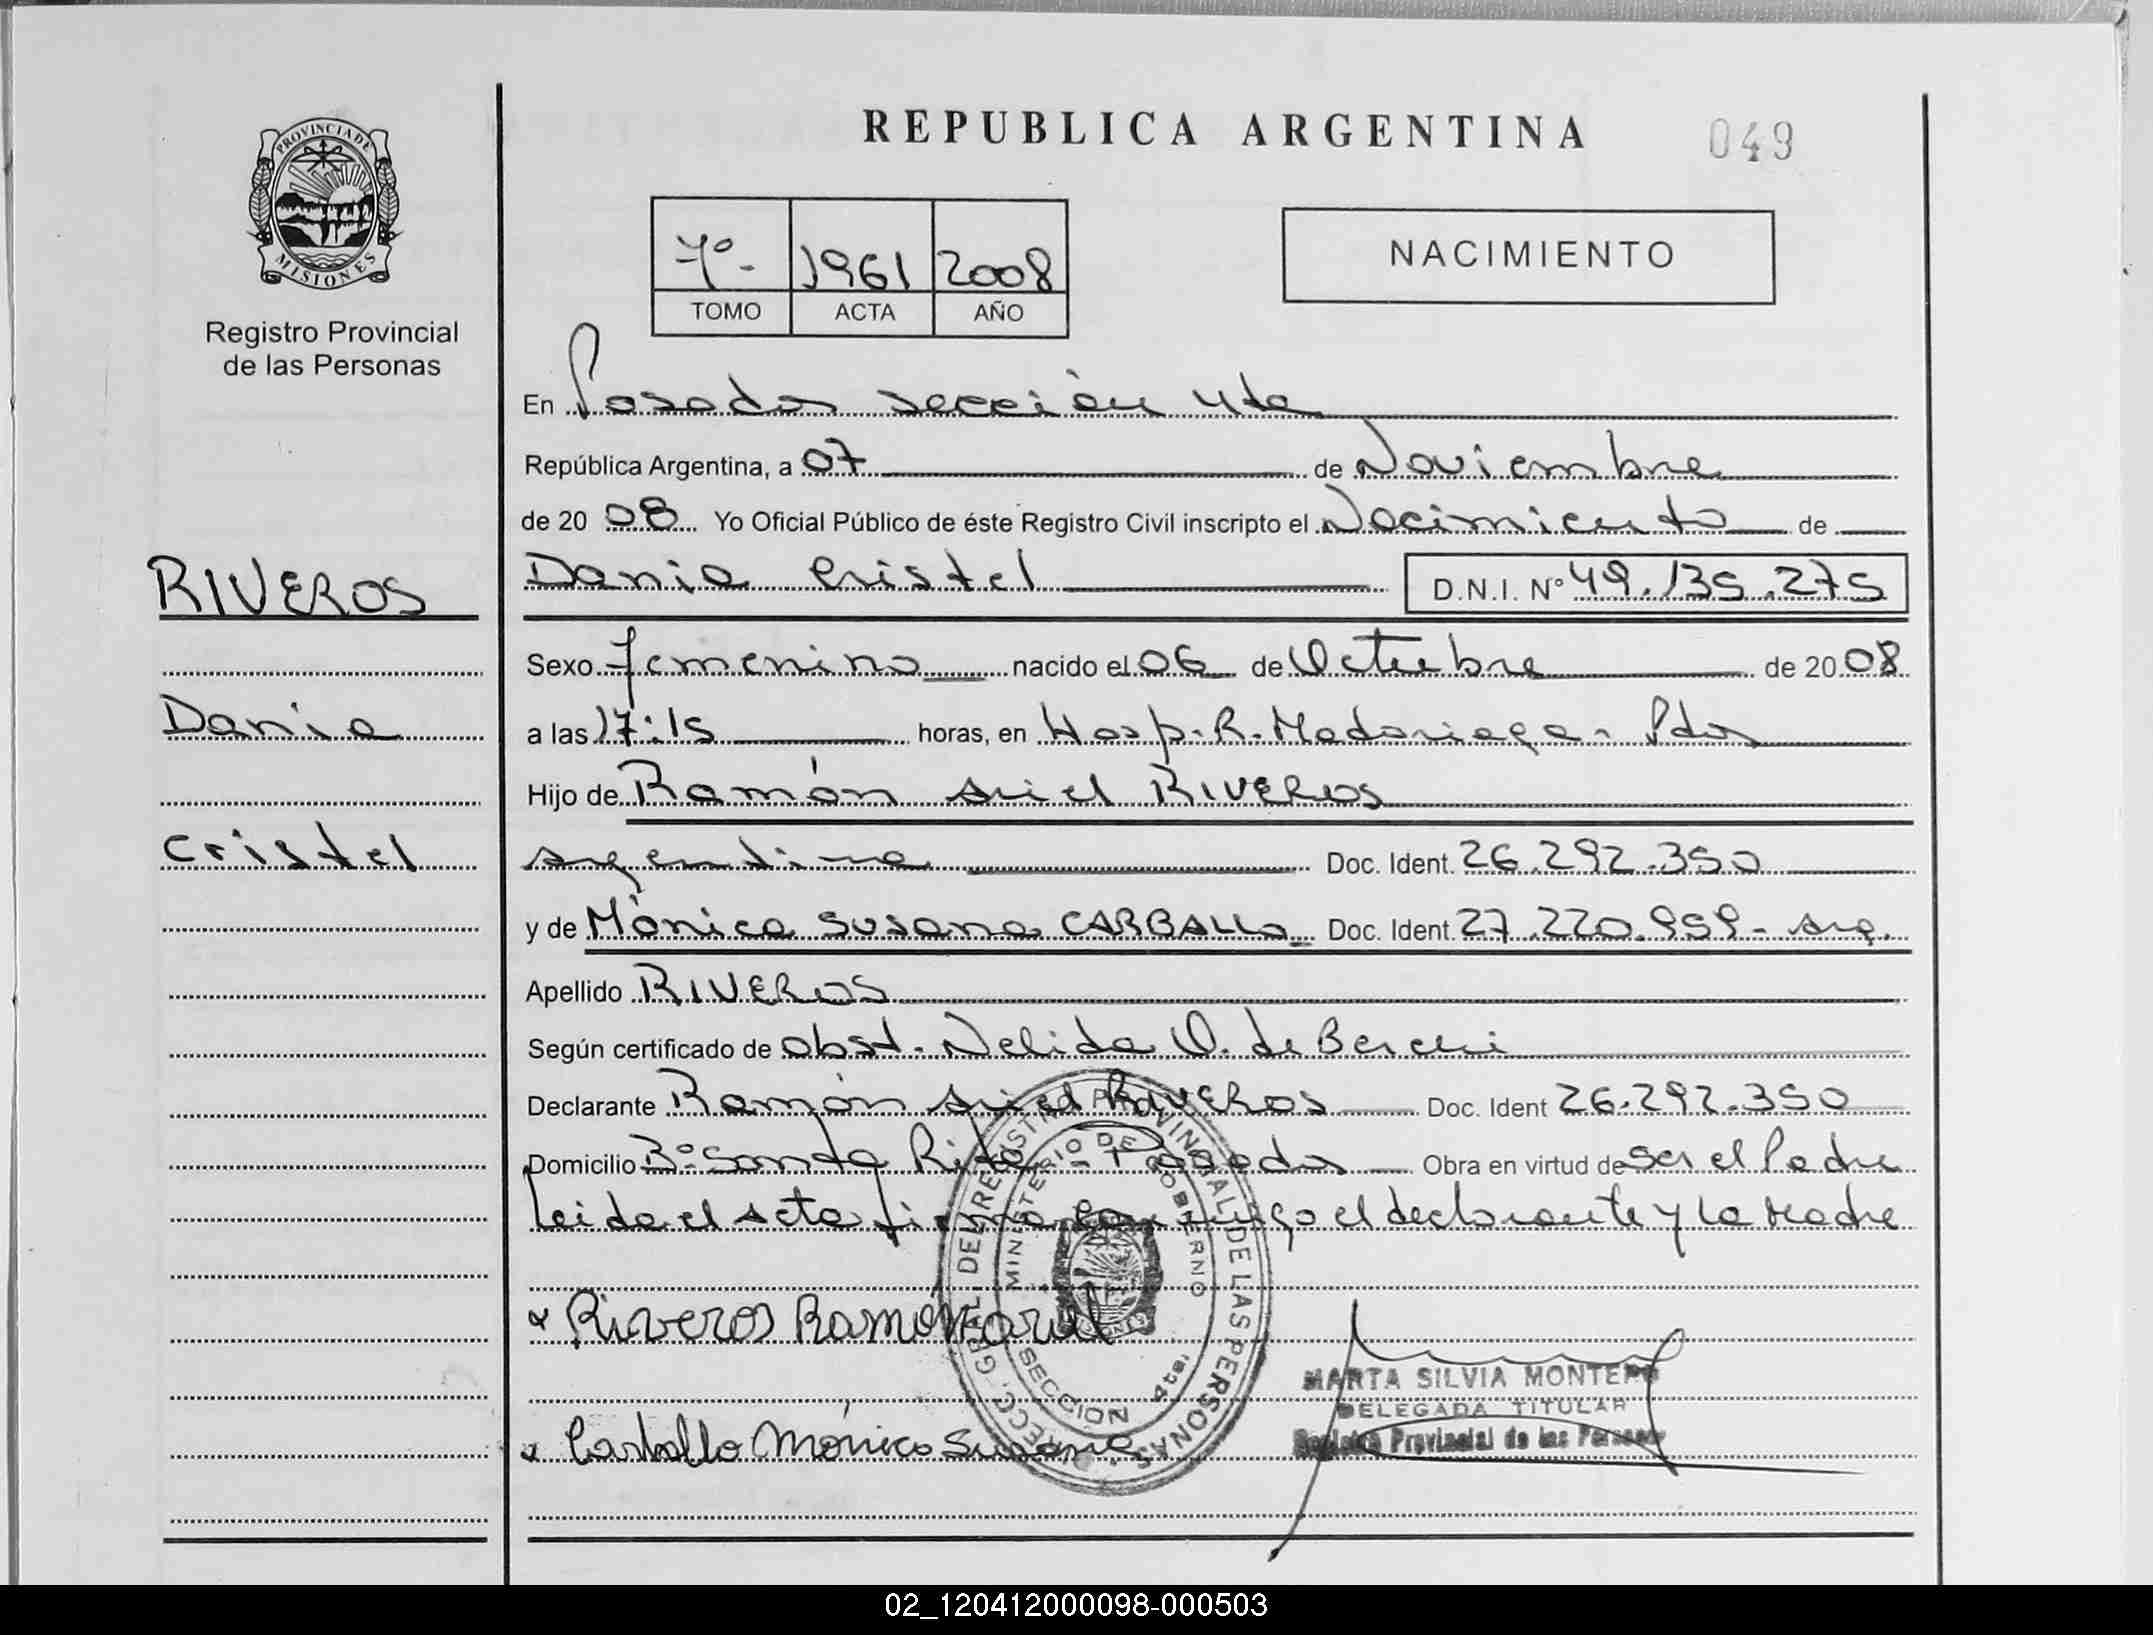 REPUBLICA ARGENTINA
049
PROVINCIA DE
MISIONES
Registro Provincial
de las Personas
7º- 1961 2008
TOMO ACTA AÑO
NACIMIENTO
En Posadas sección 4ta
República Argentina, a 07 de Noviembre
de 20 08 Yo Oficial Público de éste Registro Civil inscripto el Nacimiento de
RIVEROS
Dania Cristel D.N.I. Nº 49.135.275
Sexo femenino nacido el 06 de Octubre de 20 08
Dania
a las 17:15 horas, en Hosp. R. Madariaga - Pdas
Hijo de Ramón Ariel RIVEROS
Cristel
argentina Doc. Ident. 26.292.350
y de Mónica Susana CARBALLO Doc. Ident. 27.220.959 - Arg.
Apellido RIVEROS
Según certificado de obst. Nelida O. de
Declarante Ramón Ariel RIVEROS Doc. Ident 26.292.350
Domicilio Bº Santa Rita - Posadas Obra en virtud de ser el Padre
Leida el Acta firma conmigo el declarante y la Madre
x Riveros Ramón Ariel
DIRECC. GRAL. DEL REGISTRO PROVINCIAL DE LAS PERSONAS
MINISTERIO DE GOBIERNO
SECCION 4ta.
MARTA SILVIA MONTERO
DELEGADA TITULAR
Registro Provincial de las Personas
x Carballo Mónica Susana
02_120412000098-000503